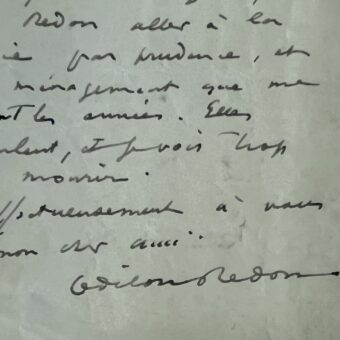 Redon aller à la
ie par prudence, et
ménagement que me
nt les années. Elles
ulent, et je vois trop
mourir.
ffectueusement à vous
mon cher ami.
Odilon Redon